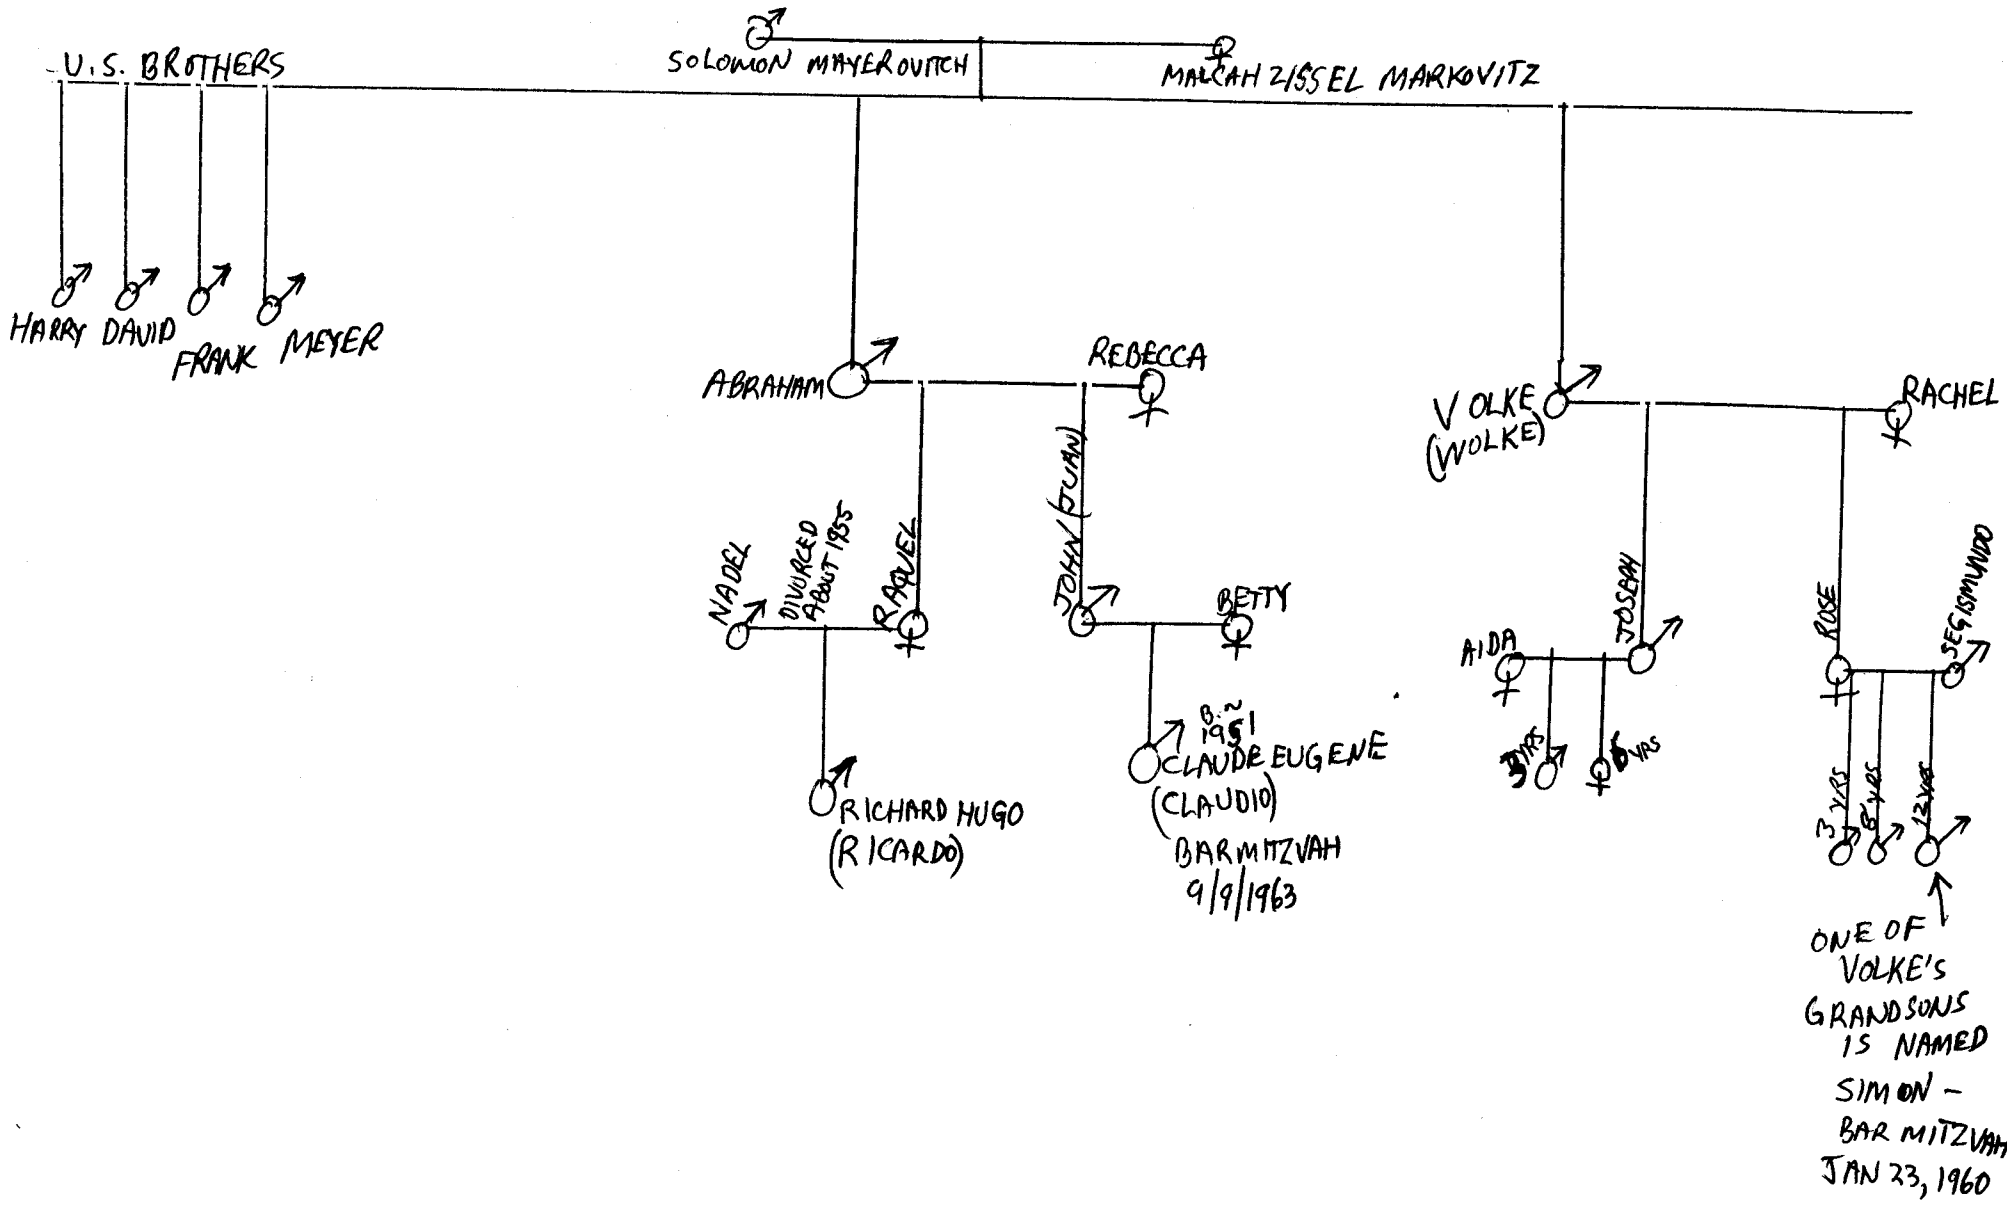 U.S. BROTHERS
SOLOMON MAYEROVITCH
MALCAH ZISSEL MARKOVITZ
HARRY
DAVID
FRANK
MEYER
ABRAHAM
REBECCA
VOLKE
(WOLKE)
RACHEL
NADEL
DIVORCED
ABOUT 1955
RAQUEL
JOHN (JUAN)
BETTY
AIDA
JOSEPH
ROSE
SEGISMUNDO
RICHARD HUGO
(RICARDO)
B. ~
1951
CLAUDE EUGENE
(CLAUDIO)
BARMITZVAH
9/9/1963
3 YRS
YRS
3 YRS
8 YRS
12 YRS
ONE OF
VOLKE'S
GRANDSONS
IS NAMED
SIMON -
BAR MITZVAH
JAN 23, 1960